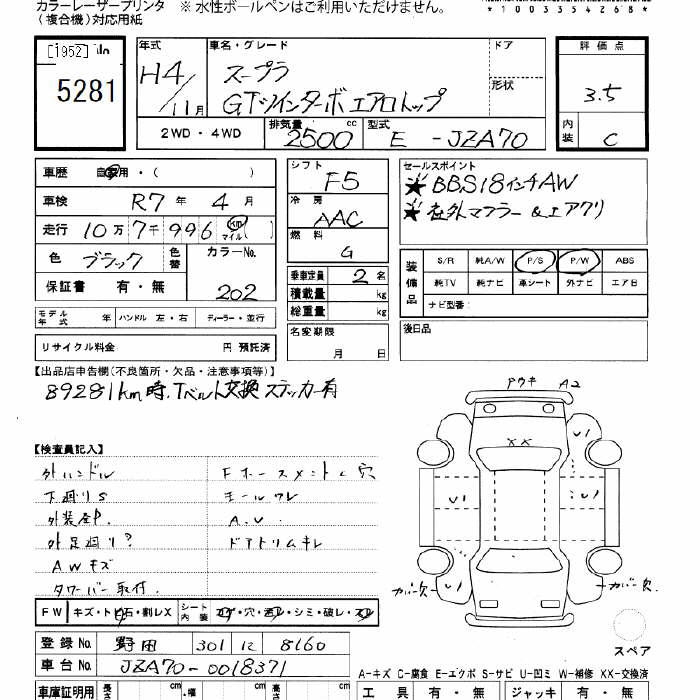 カラーレーザープリンタ ※ 水性ボールペンはご利用いただけません。
（複合機）対応用紙
*1003354268*
[1952] No
5281
年式 車名・グレード ドア 評価点
H4/11月 スープラ 形状 3.5
GTツインターボ エアロトップ
2WD・4WD 排気量 2500 cc 型式 E-JZA70 内装 C
車歴 自家用・( )
シフト F5
セールスポイント
★BBS18インチAW
★社外マフラー&エアクリ
車検 R7年 4月
冷房 AAC
走行 10万7千996 km マイル ( )
燃料 G
色 ブラック 色替 カラーNo. 202
保証書 有・無
乗車定員 2名
積載量 kg
総重量 kg
装備品 S/R 純A/W P/S P/W ABS
純TV 純ナビ 革シート 外ナビ エアB
ナビ型番:
モデル年式 年 ハンドル 左・右 ディーラー・並行
名変期限 月 日
後日品
リサイクル料金 円 預託済
【出品店申告欄(不良箇所・欠品・注意事項等)】
89281km時、Tベルト交換ステッカー有
【検査員記入】
外ハンドル
下廻りS
外装
外足廻り?
AWキズ
タワーバー取付.
ドアトリムキレ
A2
XX
U1
U1
U1
U1
カバー欠
カバー欠.
スペア
FW キズ・トビ石・割レX シート内装 コゲ・穴・シミ・破レ・スレ
登録No. 野田 301 8160
車台No. JZA70-0018371
A-キズ C-腐食 E-エクボ S-サビ U-凹ミ W-補修 XX-交換済
車庫証明用 長さ cm 幅 cm cm 工具 有・無 ジャッキ 有・無